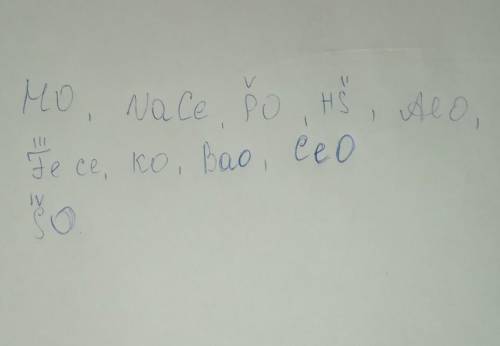 HO, NaCe, V PO, HS II, AlO,
III Fe ce, KO, BaO, CeO
IV SO.